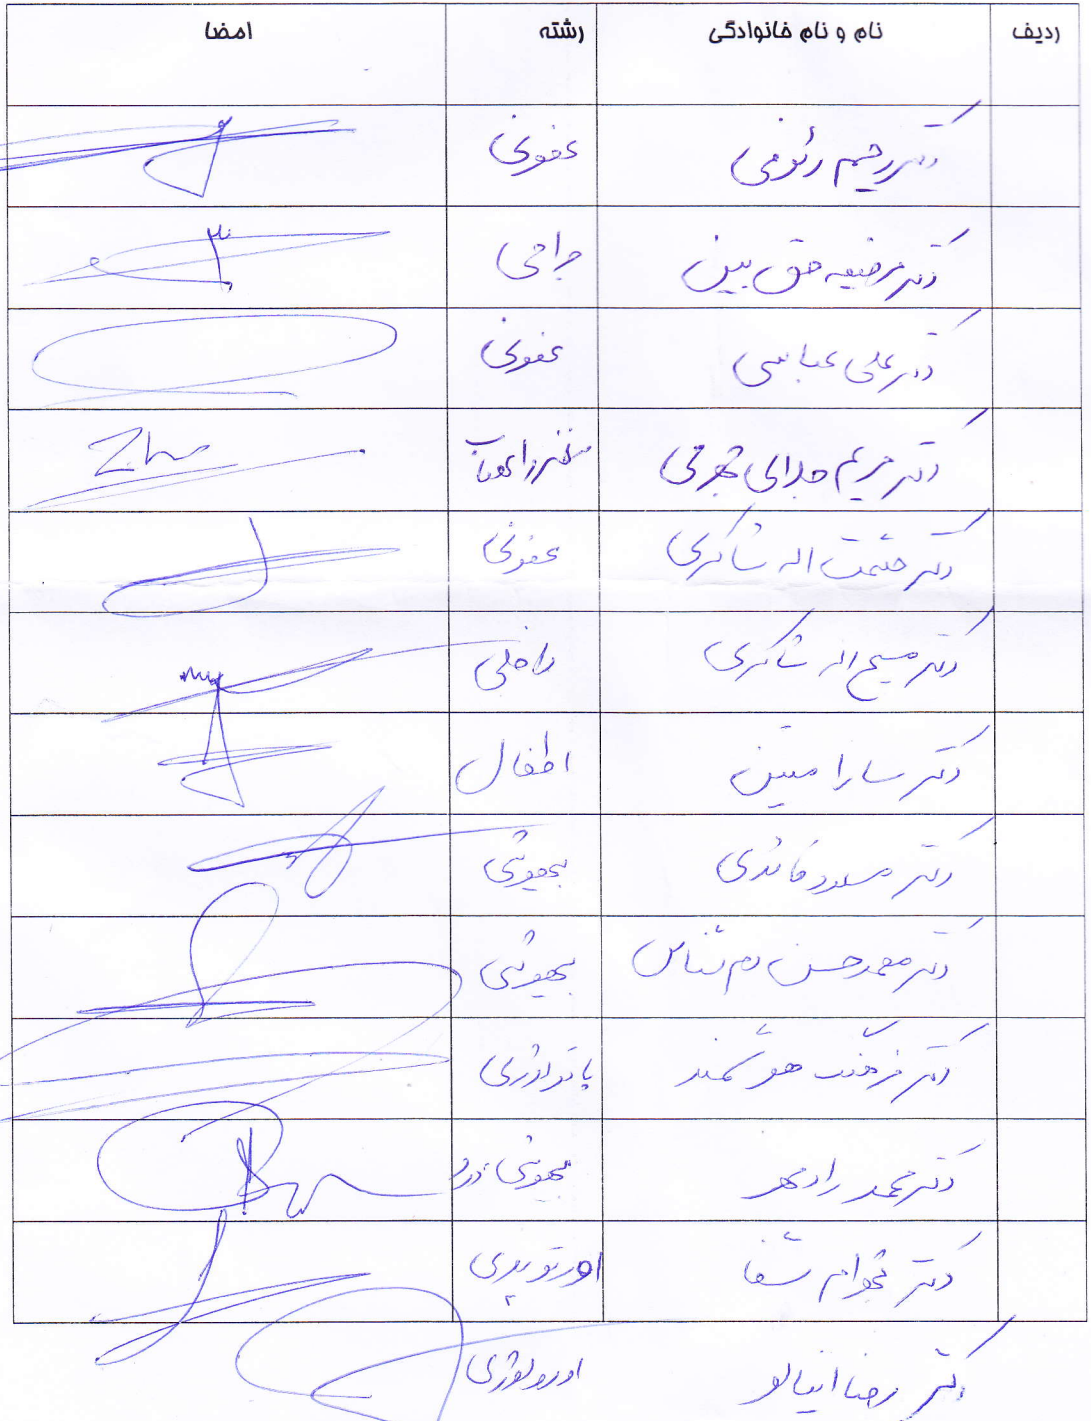 ردیف نام و نام خانوادگی رشته امضا
دکتر رحیم رئوفی عفونی
دکتر مرضیه حق بین جراحی
دکتر علی عباسی عفونی
دکتر مریم جلالی جهرمی مغز و اعصاب
دکتر حشمت اله شاکری عفونی
دکتر مسیح اله شاکری داخلی
دکتر سارا متین اطفال
دکتر مسعود قائدی بیهوشی
دکتر محمد حسن دم شناس بیهوشی
دکتر فرهنگ هوشمند پاتولوژی
دکتر محمد رادمهر بیهوشی
دکتر شفا اورتوپدی
دکتر رضا اورولوژی